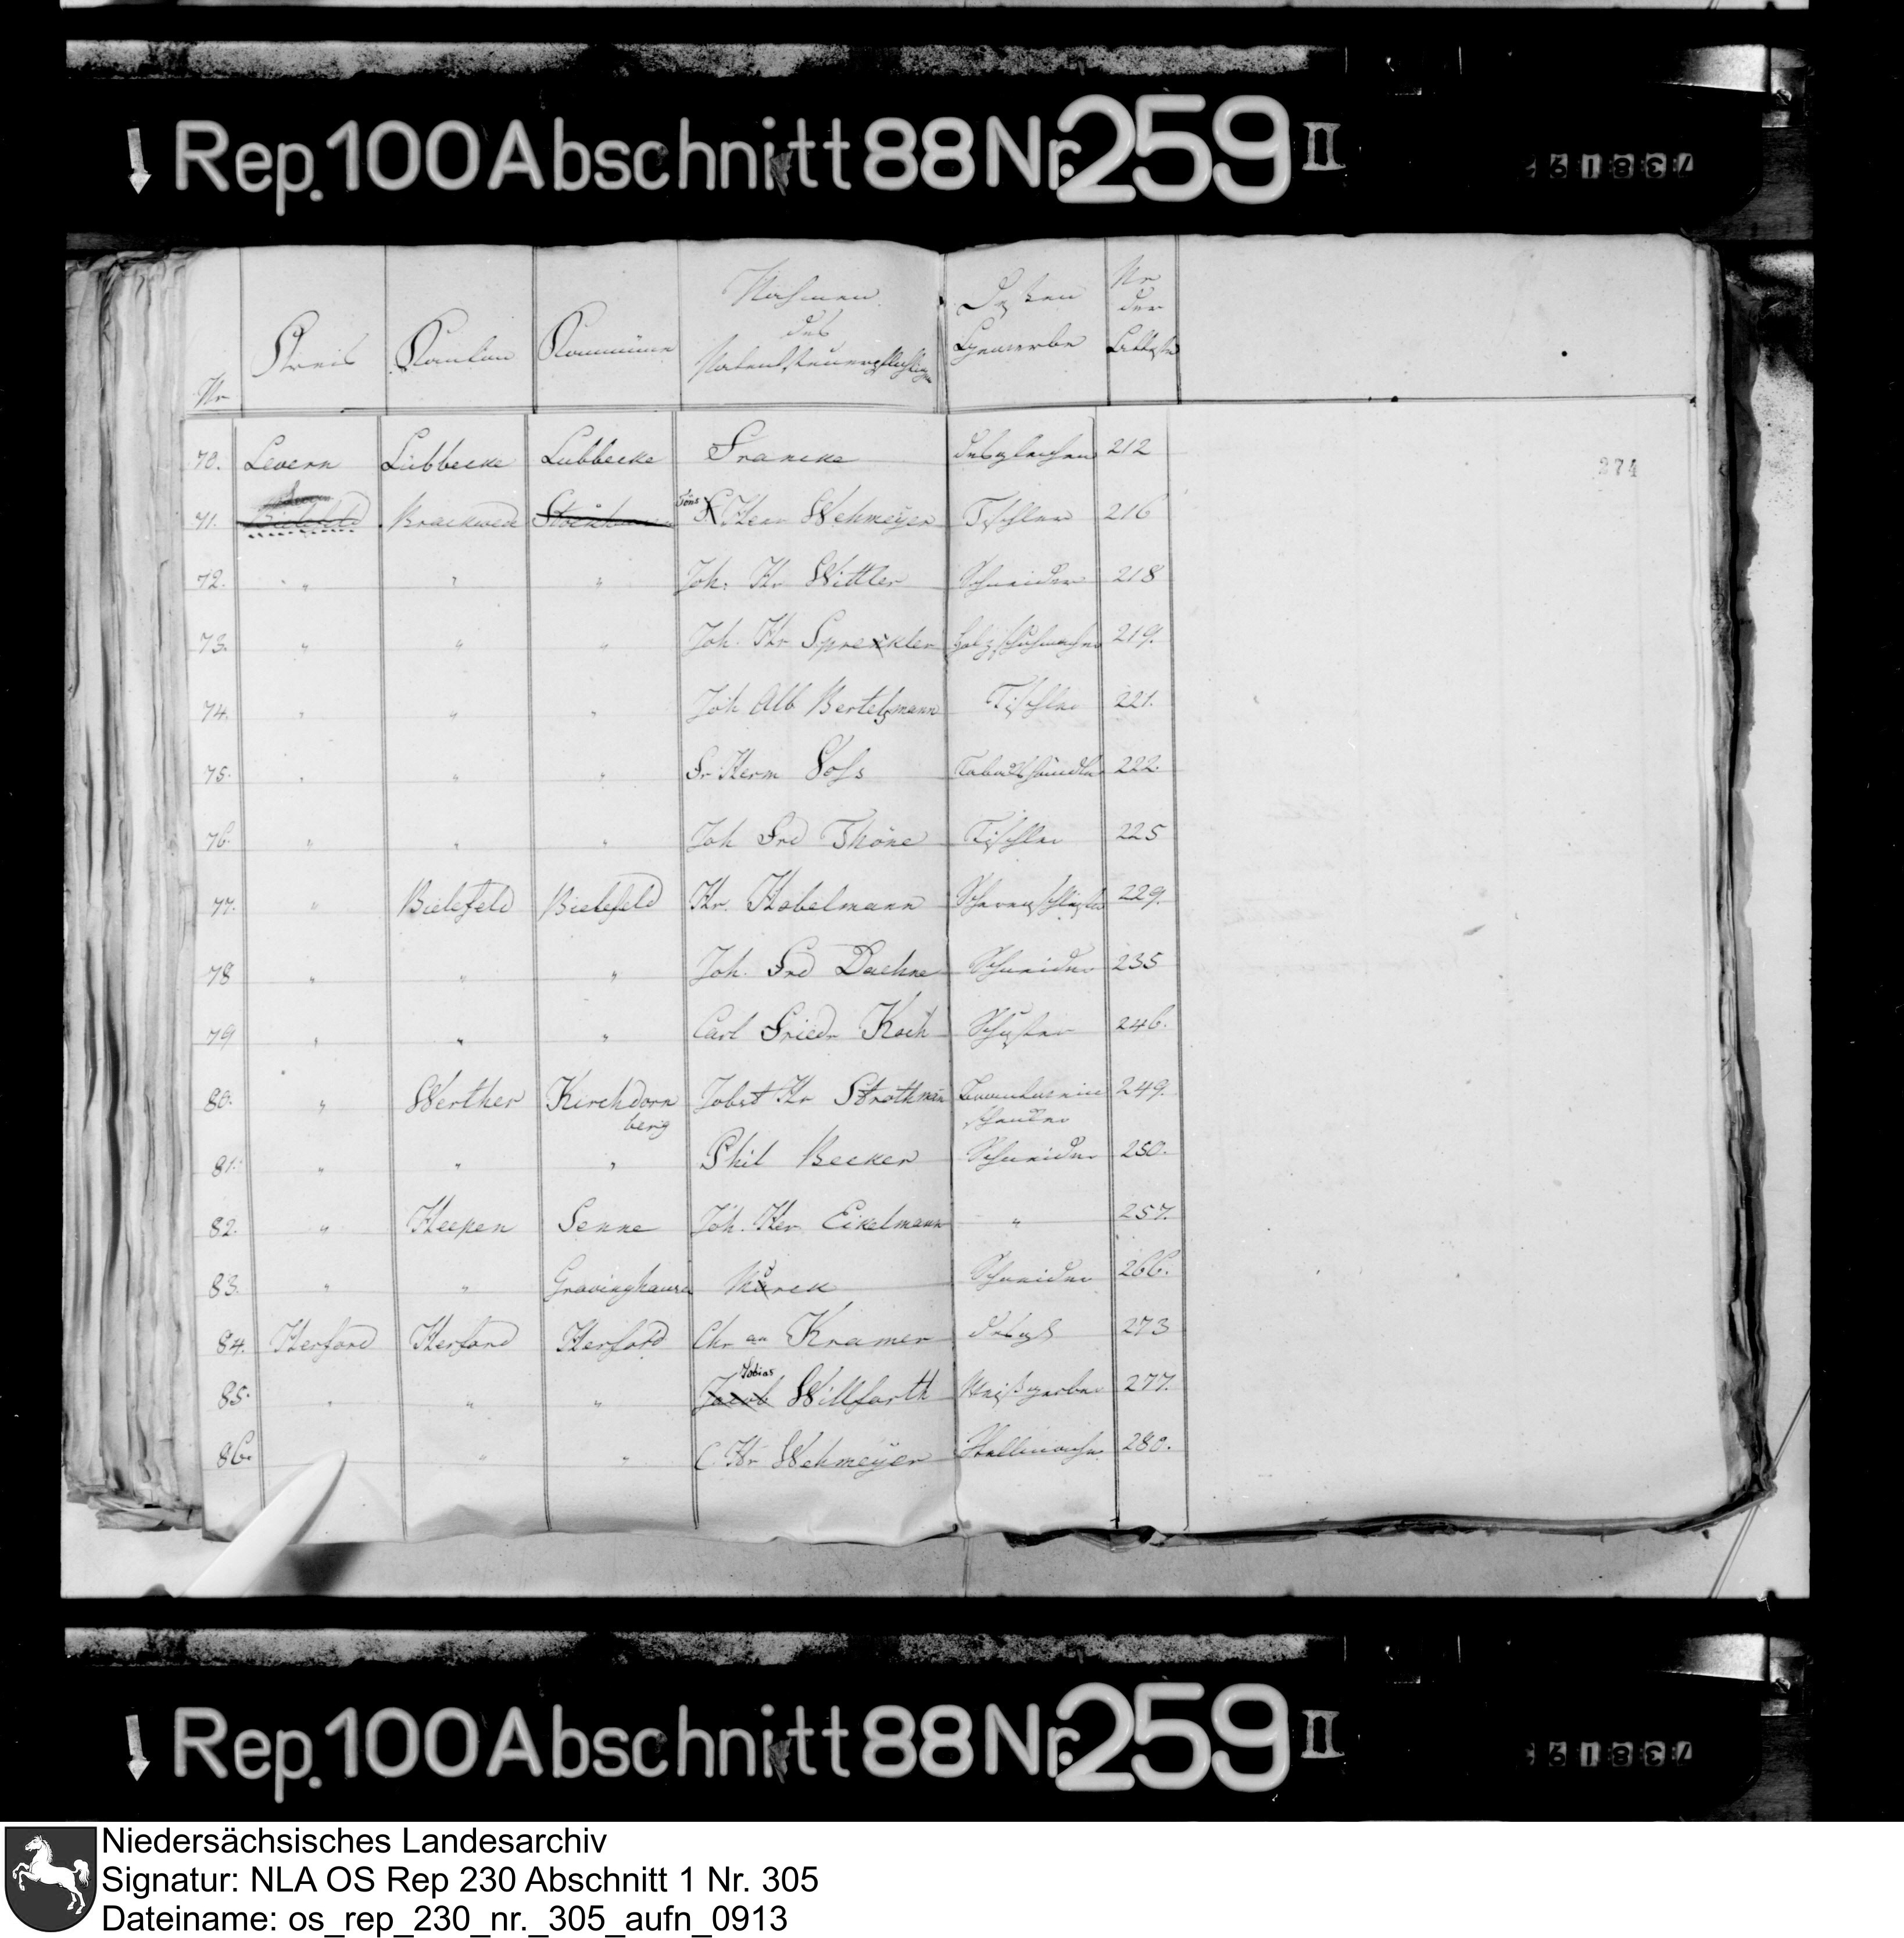 Rep. 100 Abschnitt 88 Nr. 259 II
738192
Nr Kreis Kanton Kommüne Nahmen des Patentsteuerpflichtigen Dessen Gewerbe Nr der Atteste
274
70. Levern Lübbecke Lübbecke Francke desgleichen 212
71. Bielefeld Brackwede Tons Herr Wehmeyer Tischler 216
72. " " " Joh. Hr Wittler Schneider 218
73. " " " Joh. Hr Spreckler Holzschuhmacher 219.
74. " " " Joh Alb Bertelsmann Tischler 221.
75. " " " Fr Herm Voss Taback händler 222.
76. " " " Joh Frd Thöne Tischler 225
77. " Bielefeld Bielefeld Hr. Habelmann 229.
78 " " " Joh. Frd Daehne Schneider 235
79 " " " Carl Friedr Koch Schuster 246.
80. " Werther Kirchdorn berg Jobst Hr Strothman Branntwein schenker 249.
81. " " " Phil Becker Schneider 250.
82. " Heepen Senne Joh. Her Eikelmann " 257.
83. " " Gravinghausen Schneider 266.
84. Herford Herford Herford Chr an Kramer desgl 273
85. " " " Jacob Tobias Willfarth Weißgerber 277.
86. " " C. Hr Wehmeyer 280.
Rep. 100 Abschnitt 88 Nr. 259 II
738192
Niedersächsisches Landesarchiv
Signatur: NLA OS Rep 230 Abschnitt 1 Nr. 305
Dateiname: os_rep_230_nr._305_aufn_0913